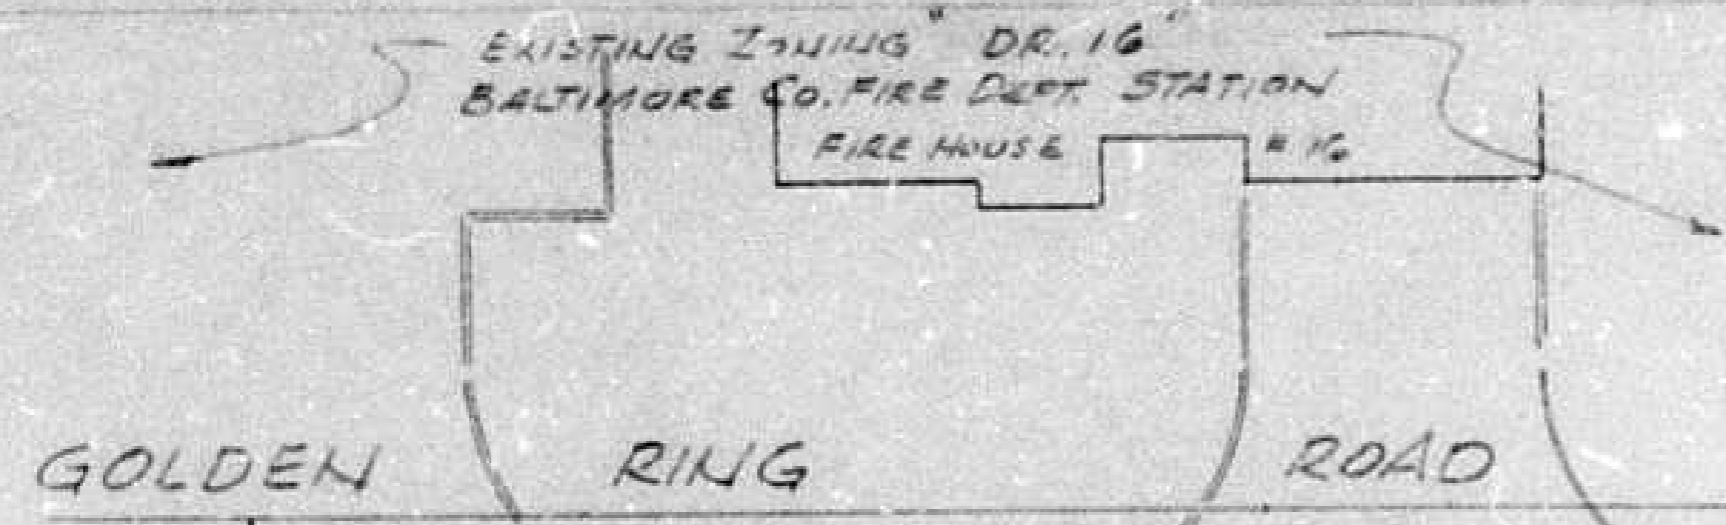 EXISTING ZONING "DR. 16"
BALTIMORE CO. FIRE DEPT. STATION
FIRE HOUSE # 16
GOLDEN RING ROAD